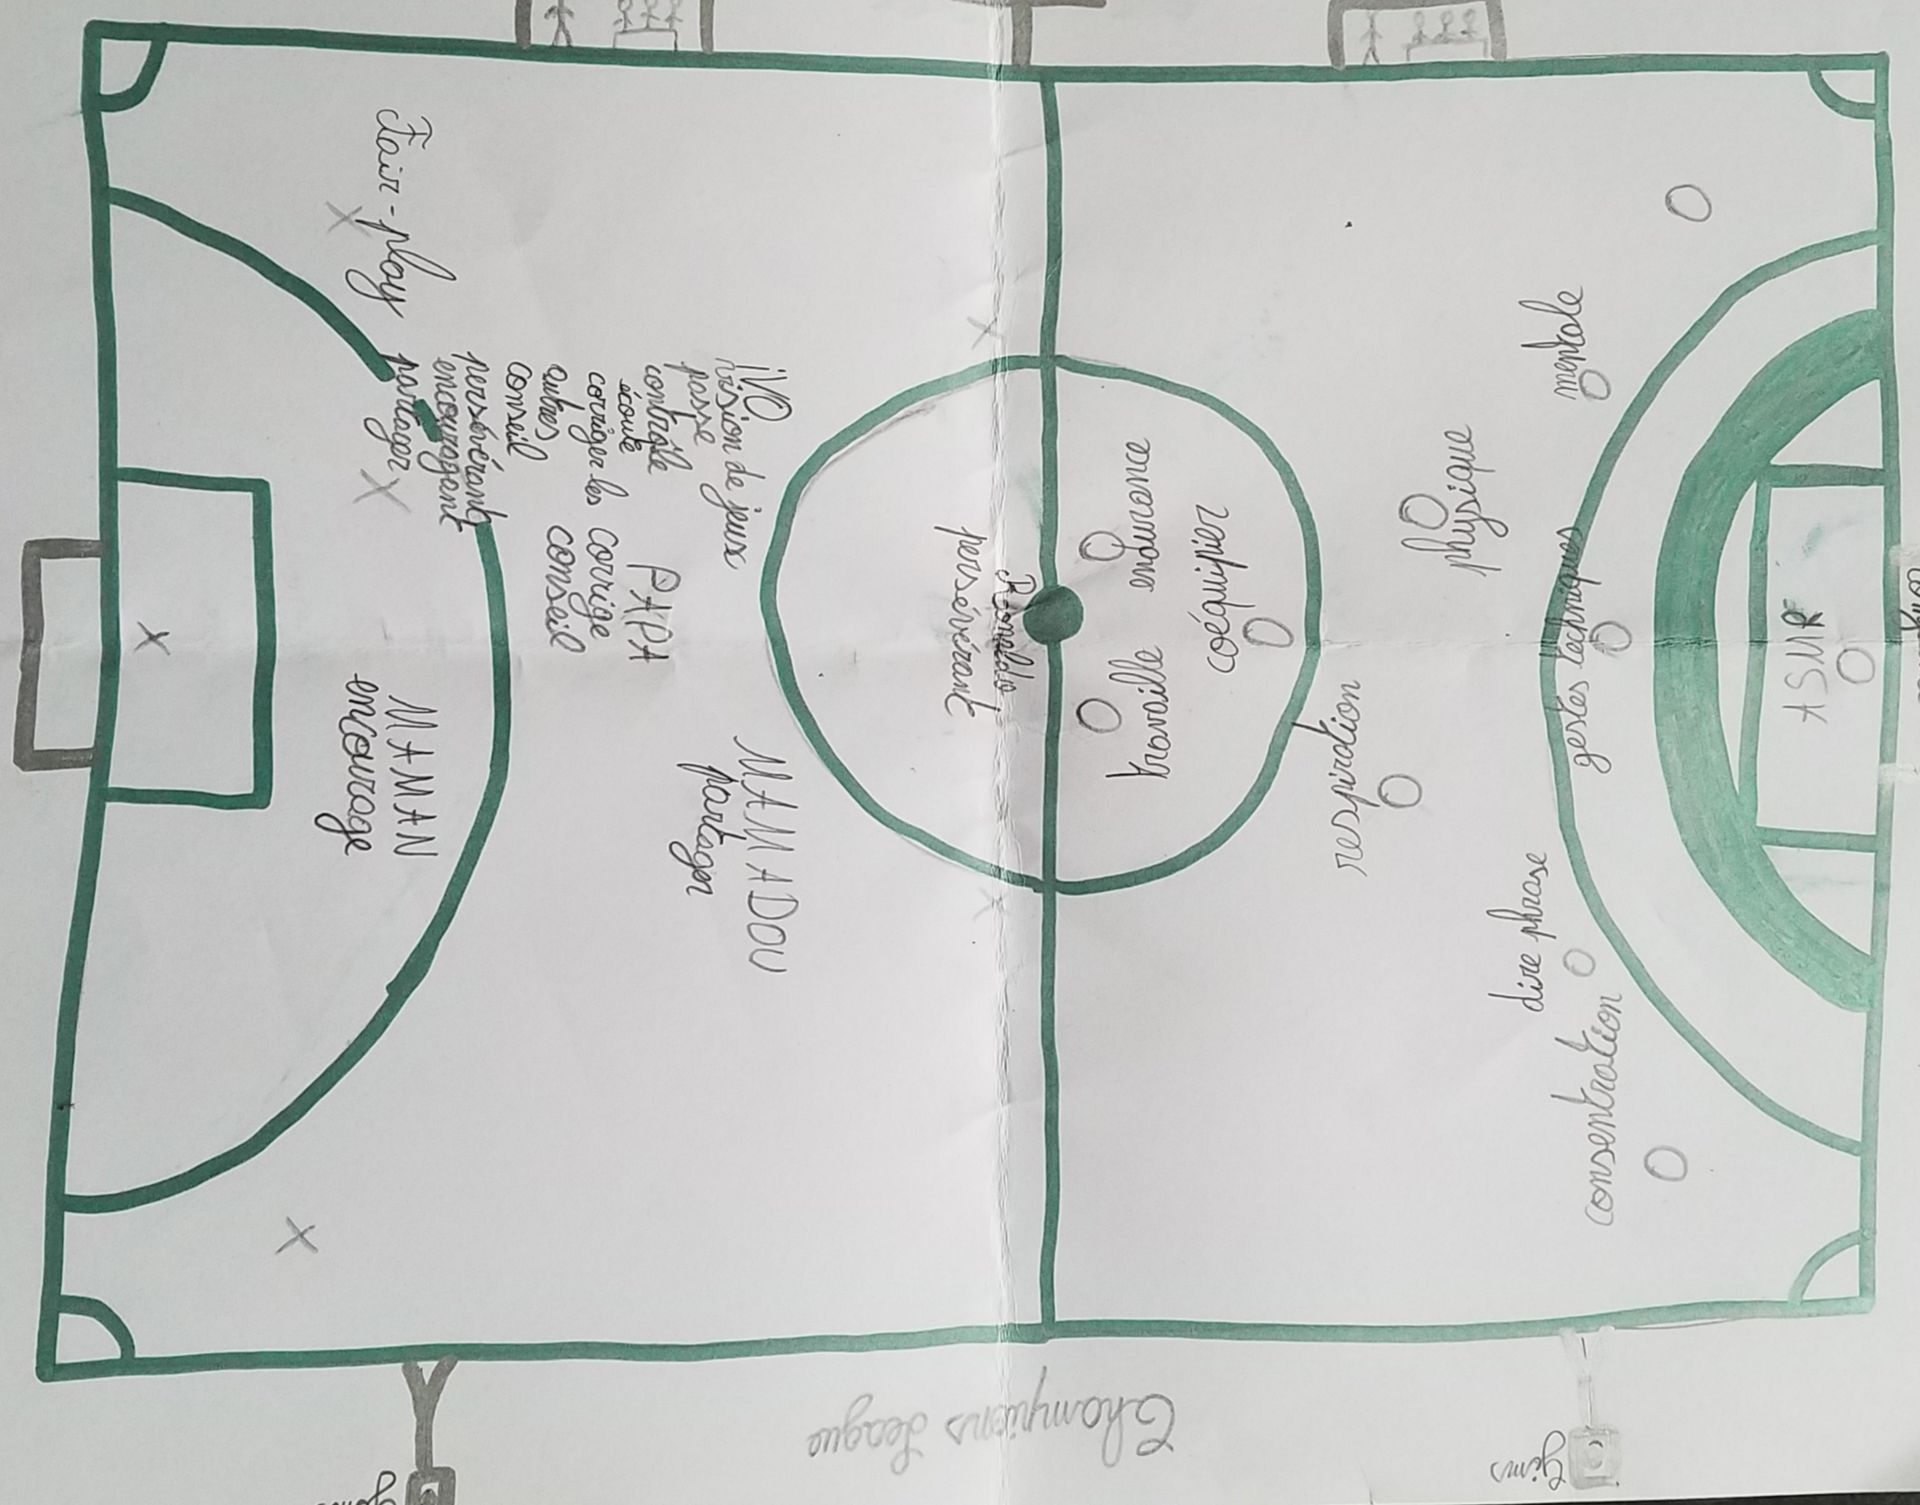 Fair-play
iVO
vision de jeux
passe
contrôle
écoute
corriger les
autres
conseil
persévérant
encourageant
partager
PAPA
corrige
conseil
MAMAN
encourage
MAMADOU
partager
Ronaldo
persévérant
endurance
travaille
coéquipier
respiration
physique
mentale
gestes techniques
dire phrase
consentration
ASMR
Champions League
Gims